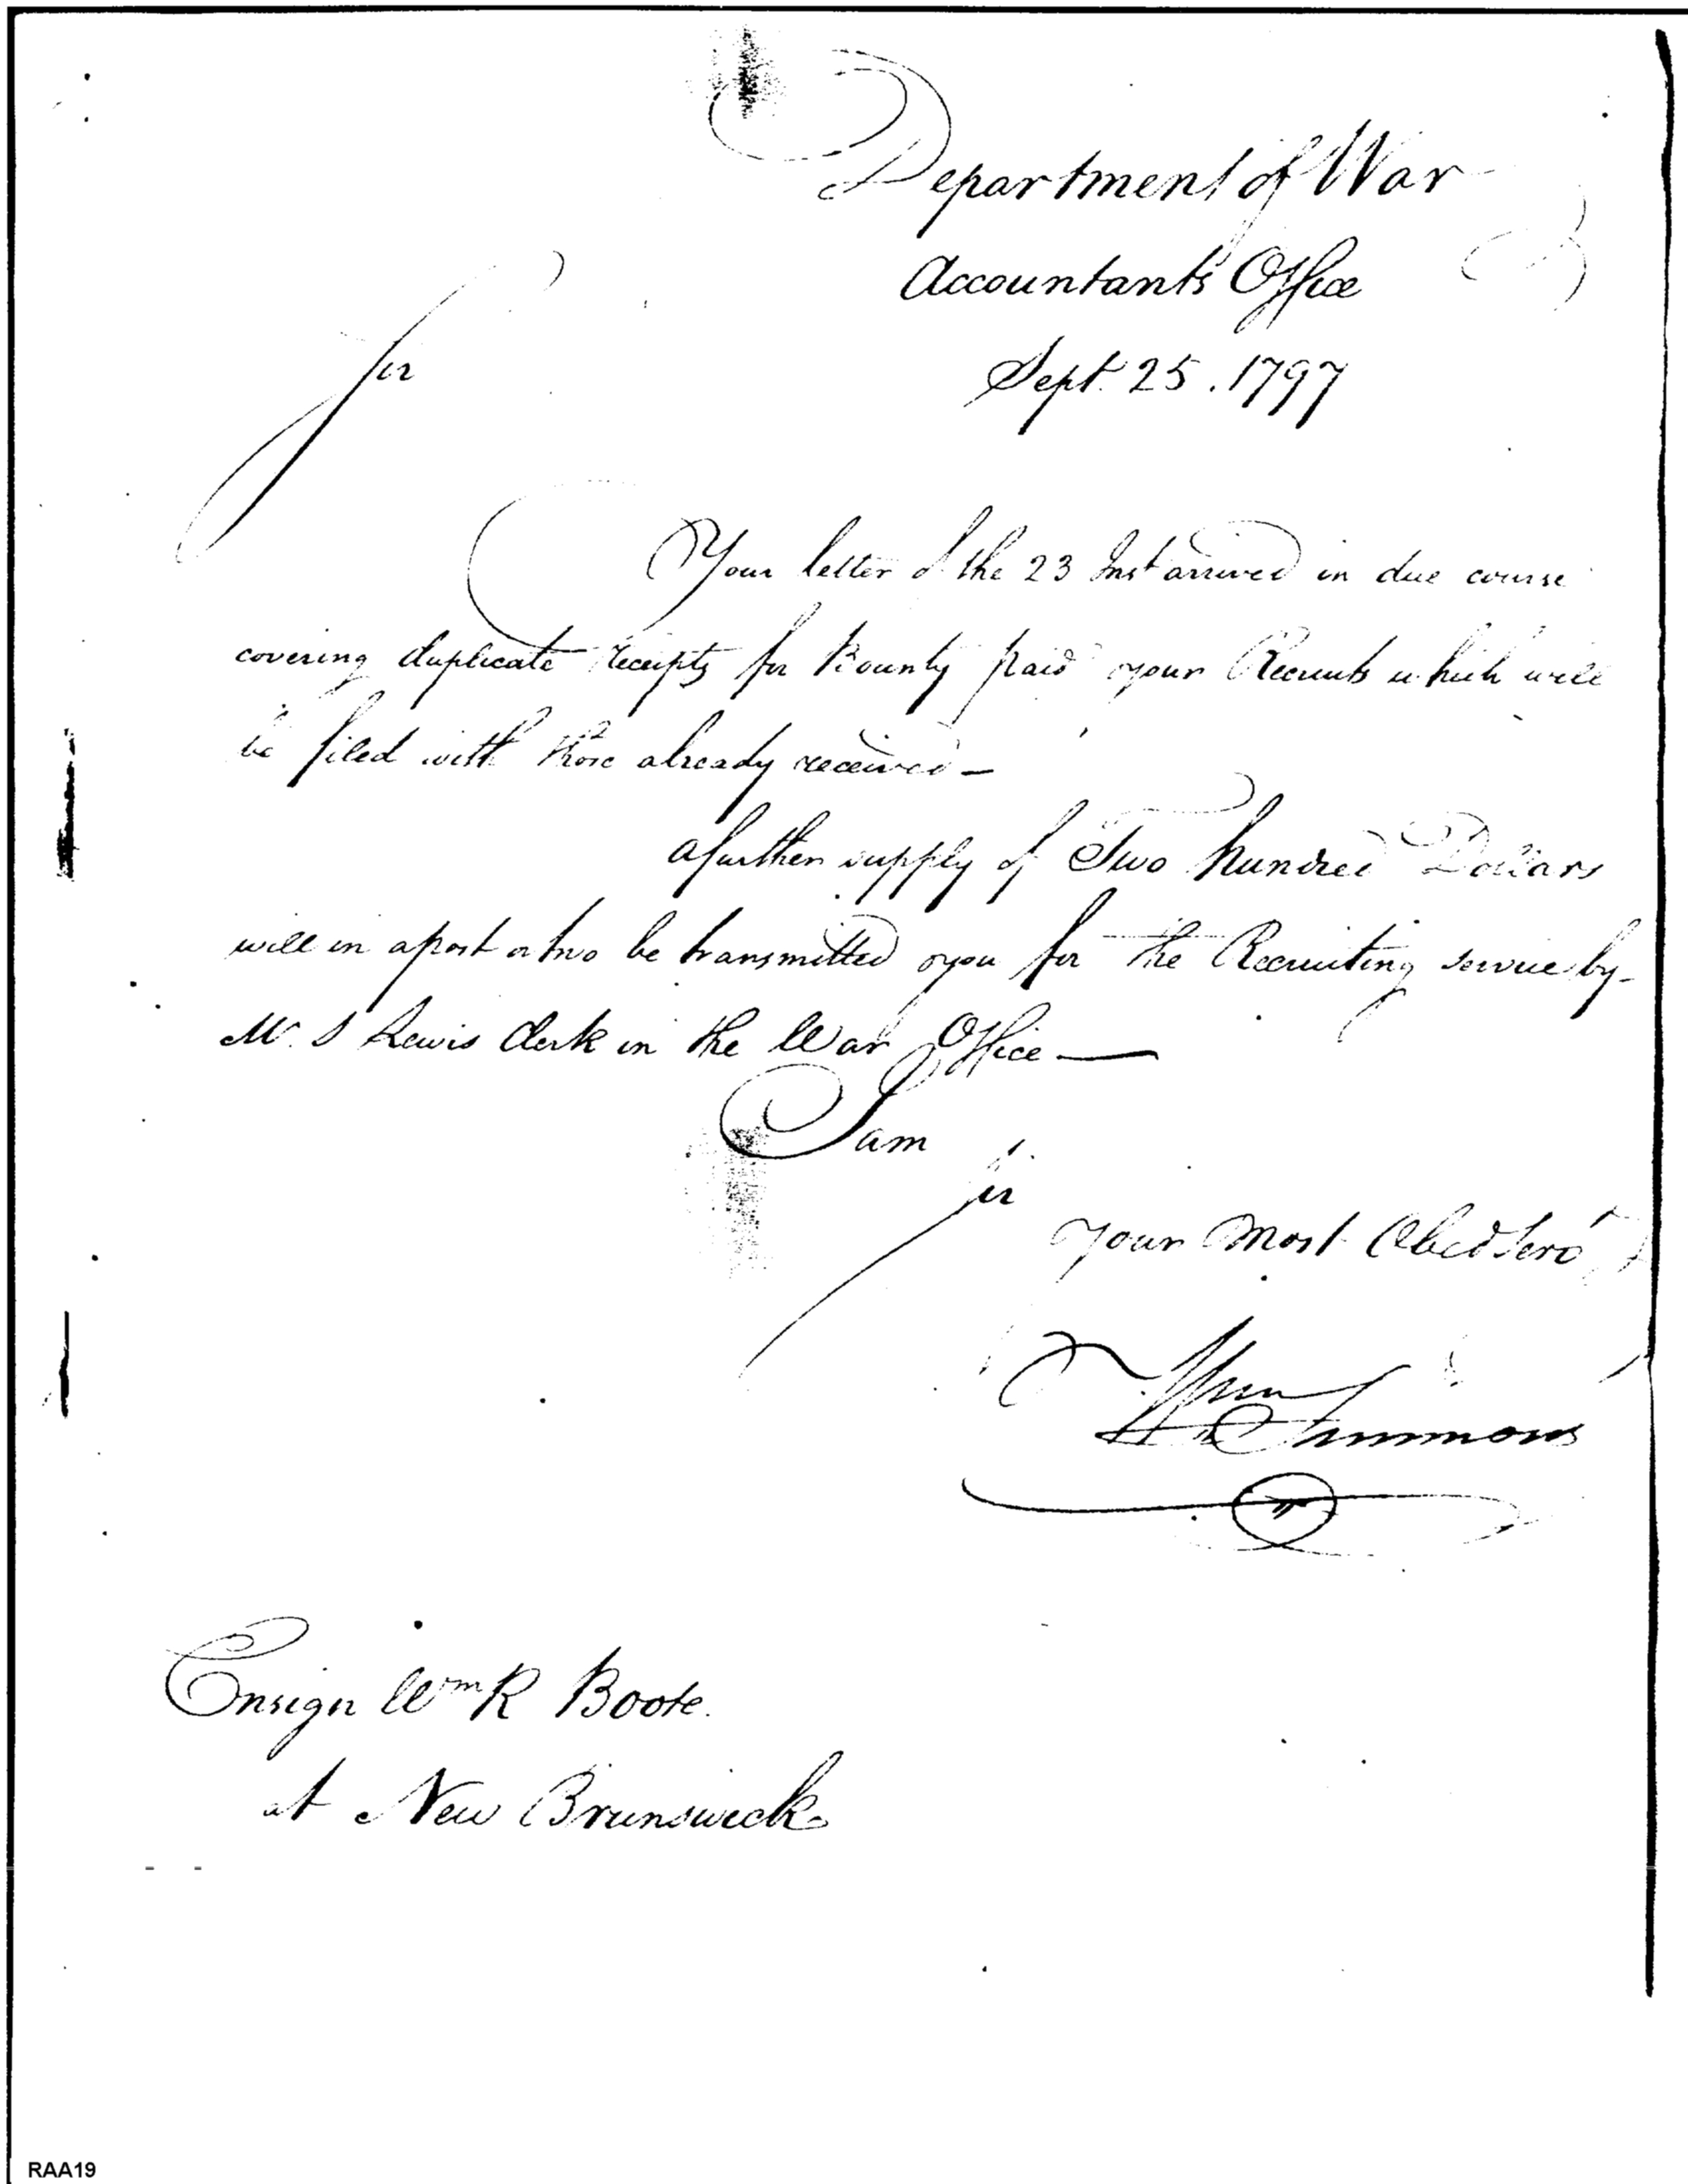 Department of War
Accountants Office
Sept. 25. 1797
Sir
Your letter of the 23 Inst arrived in due course
covering duplicate receipts for Bounty paid your Recruits which will
be filed with those already received—
A further supply of Two hundred Dollars
will in a post or two be transmitted you for the Recruiting service by
Mr. S Lewis Clerk in the War Office—
I am
Sir
your most Obed Serv
Wm Simmons
Ensign Wm R Boote.
at New Brunswick
RAA19